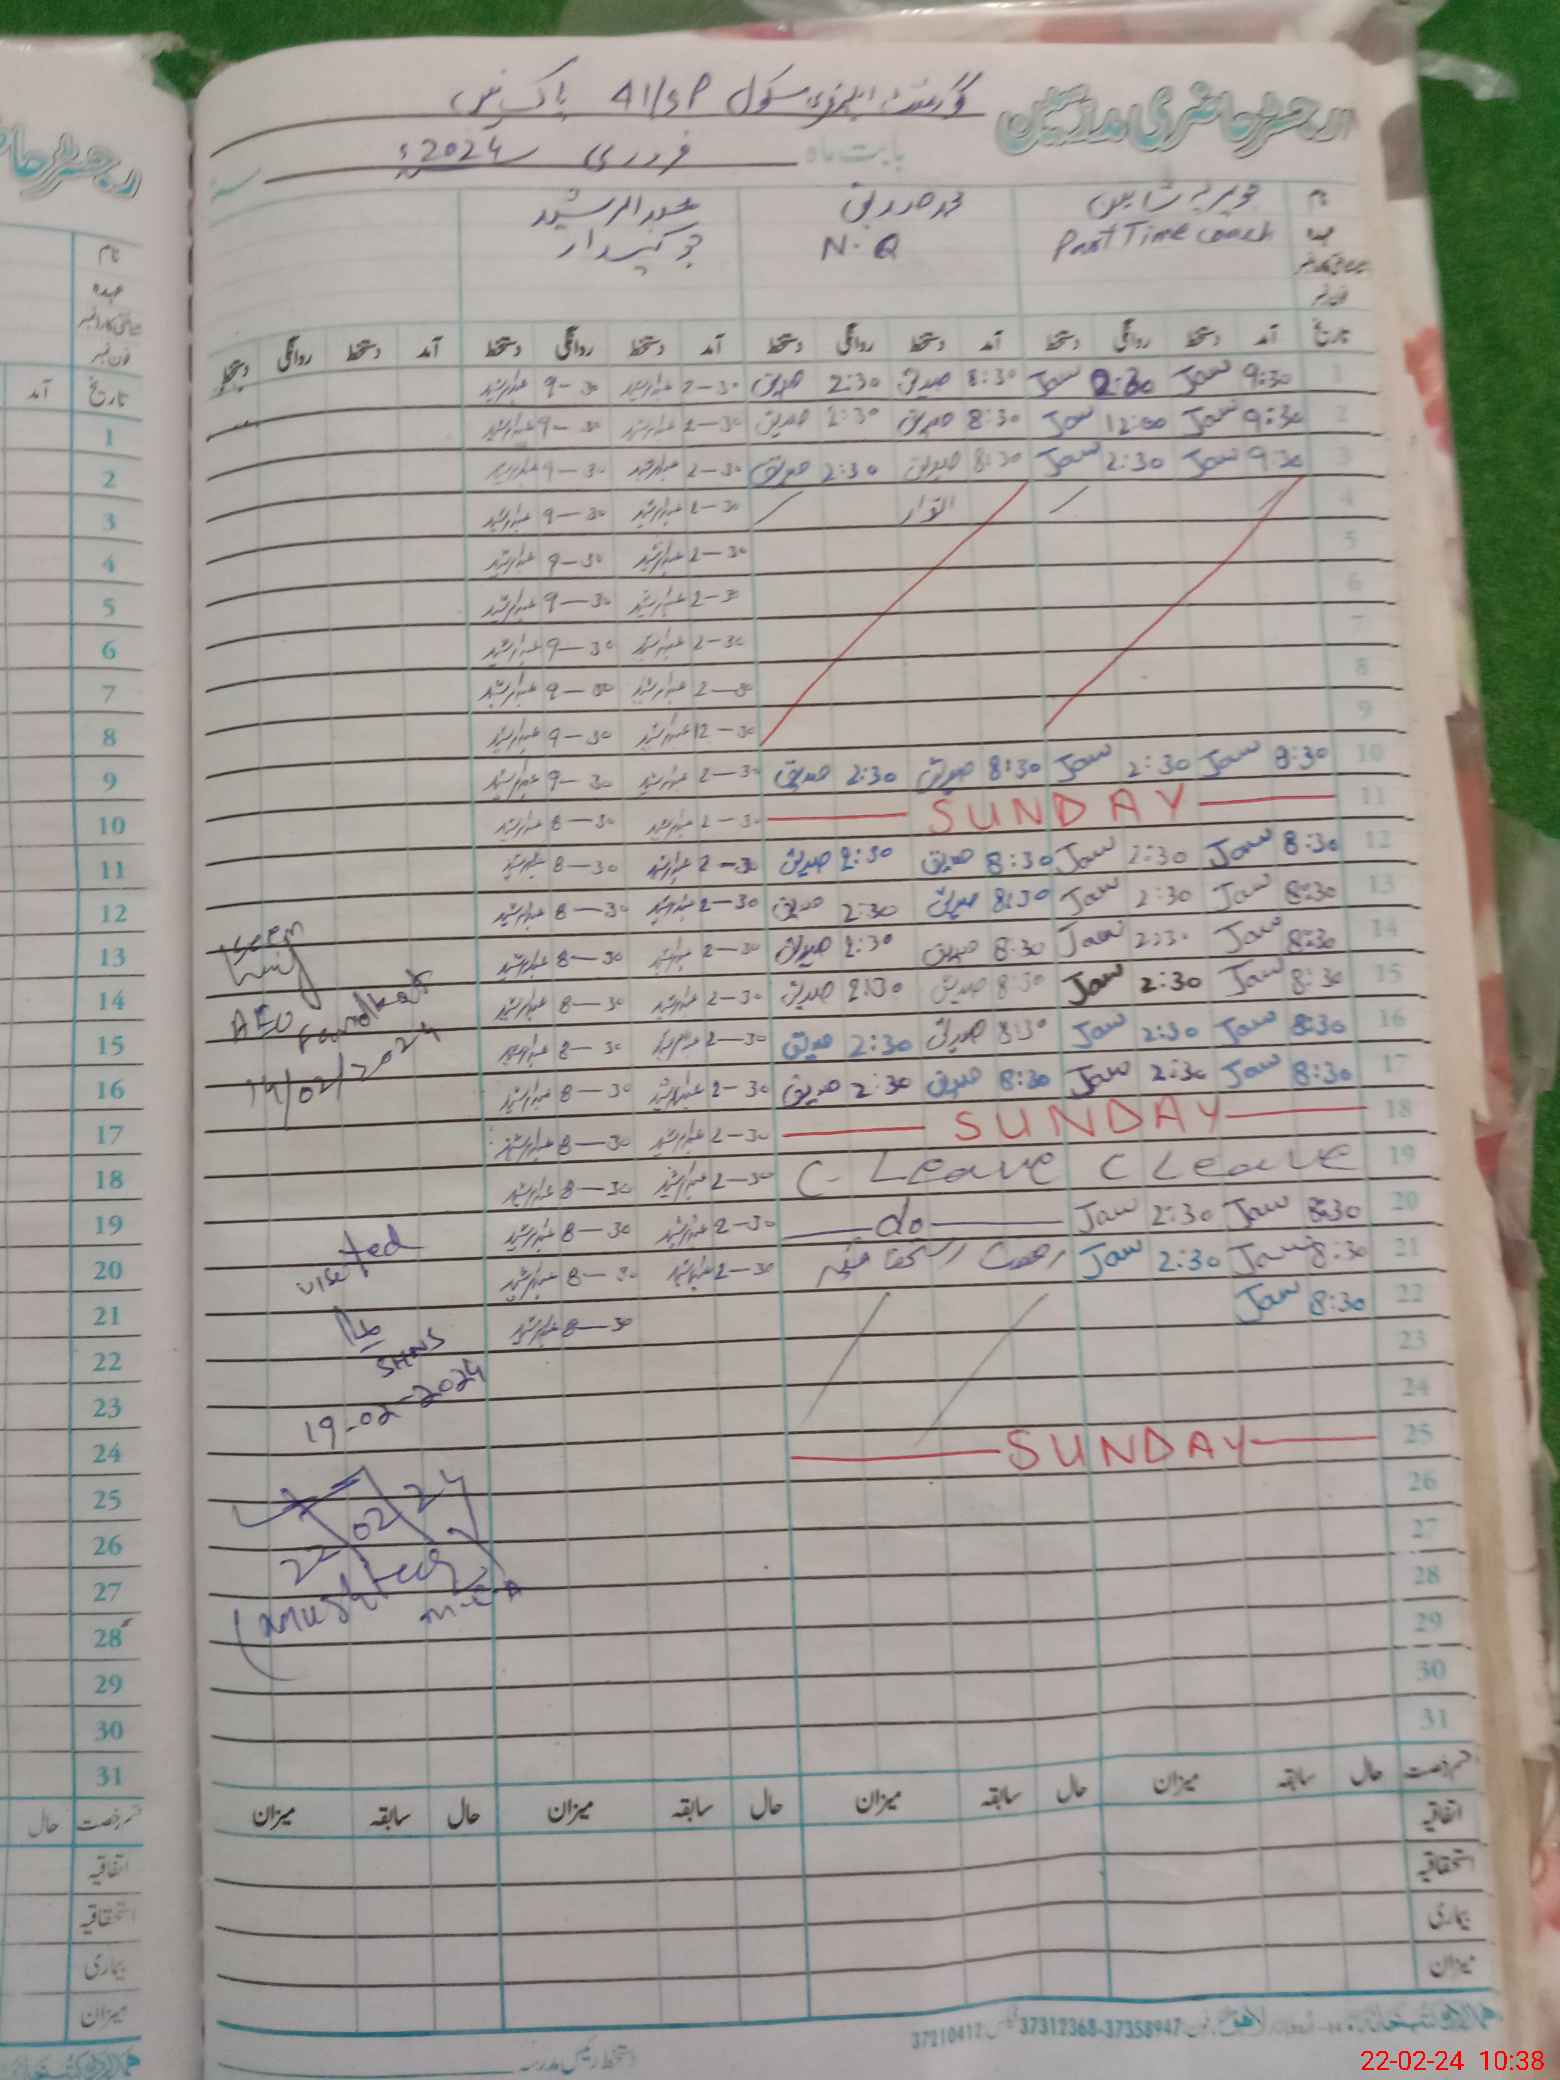 رجسٹر حاضری مدرسین گورنمنٹ ایلیمنٹری سکول 41/SP پاکپتن
بابت ماہ فروری 2024ء
نام جویریہ شاہین محمد صدیق عبدالرشید
عہدہ Part Time coach N.Q چوکیدار
شناختی کارڈ نمبر
فون نمبر
تاریخ آمد دستخط روانگی دستخط آمد دستخط روانگی دستخط آمد دستخط روانگی دستخط آمد دستخط روانگی دستخط
1 9:30 Jaw 2:30 Jaw 8:30 صدیق 2:30 صدیق 2-30 عبدالرشید 9-30 عبدالرشید
2 9:30 Jaw 12:00 Jaw 8:30 صدیق 2:30 صدیق 2-30 عبدالرشید 9-30 عبدالرشید
3 9:30 Jaw 2:30 Jaw 8:30 صدیق 2:30 صدیق 2-30 عبدالرشید 9-30 عبدالرشید
4 اتوار 2-30 عبدالرشید 9-30 عبدالرشید
5 2-30 عبدالرشید 9-30 عبدالرشید
6 2-30 عبدالرشید 9-30 عبدالرشید
7 2-30 عبدالرشید 9-30 عبدالرشید
8 2-30 عبدالرشید 9-30 عبدالرشید
9 12-30 عبدالرشید 9-30 عبدالرشید
10 8:30 Jaw 2:30 Jaw 8:30 صدیق 2:30 صدیق 2-30 عبدالرشید 9-30 عبدالرشید
11 SUNDAY 2-30 عبدالرشید 8-30 عبدالرشید
12 8:30 Jaw 2:30 Jaw 8:30 صدیق 2:30 صدیق 2-30 عبدالرشید 8-30 عبدالرشید
13 8:30 Jaw 2:30 Jaw 8:30 صدیق 2:30 صدیق 2-30 عبدالرشید 8-30 عبدالرشید
14 8:30 Jaw 2:30 Jaw 8:30 صدیق 2:30 صدیق 2-30 عبدالرشید 8-30 عبدالرشید
15 8:30 Jaw 2:30 Jaw 8:30 صدیق 2:30 صدیق 2-30 عبدالرشید 8-30 عبدالرشید
16 8:30 Jaw 2:30 Jaw 8:30 صدیق 2:30 صدیق 2-30 عبدالرشید 8-30 عبدالرشید
17 8:30 Jaw 2:30 Jaw 8:30 صدیق 2:30 صدیق 2-30 عبدالرشید 8-30 عبدالرشید
18 SUNDAY 2-30 عبدالرشید 8-30 عبدالرشید
19 C-Leave C Leave 2-30 عبدالرشید 8-30 عبدالرشید
20 8:30 Jaw 2:30 Jaw do 2-30 عبدالرشید 8-30 عبدالرشید
21 8:30 Jaw 2:30 Jaw رخصت استحقاقیہ 2-30 عبدالرشید 8-30 عبدالرشید
22 8:30 Jaw 8-30 عبدالرشید
23
24
25 SUNDAY
26
27
28
29
30
31
Seen
AEO
14/02/2024
visited
SHNS
19-02-2024
22/02/24
(mushtaq
M.E.A
قسم رخصت حال سابقہ میزان حال سابقہ میزان حال سابقہ میزان حال سابقہ میزان
اتفاقیہ
استحقاقیہ
بیماری
میزان
37210412 37312368-37358947
دستخط رئیس مدرسہ
نام
عہدہ
شناختی کارڈ نمبر
فون نمبر
تاریخ آمد
1
2
3
4
5
6
7
8
9
10
11
12
13
14
15
16
17
18
19
20
21
22
23
24
25
26
27
28
29
30
31
قسم رخصت حال
اتفاقیہ
استحقاقیہ
بیماری
میزان
22-02-24 10:38